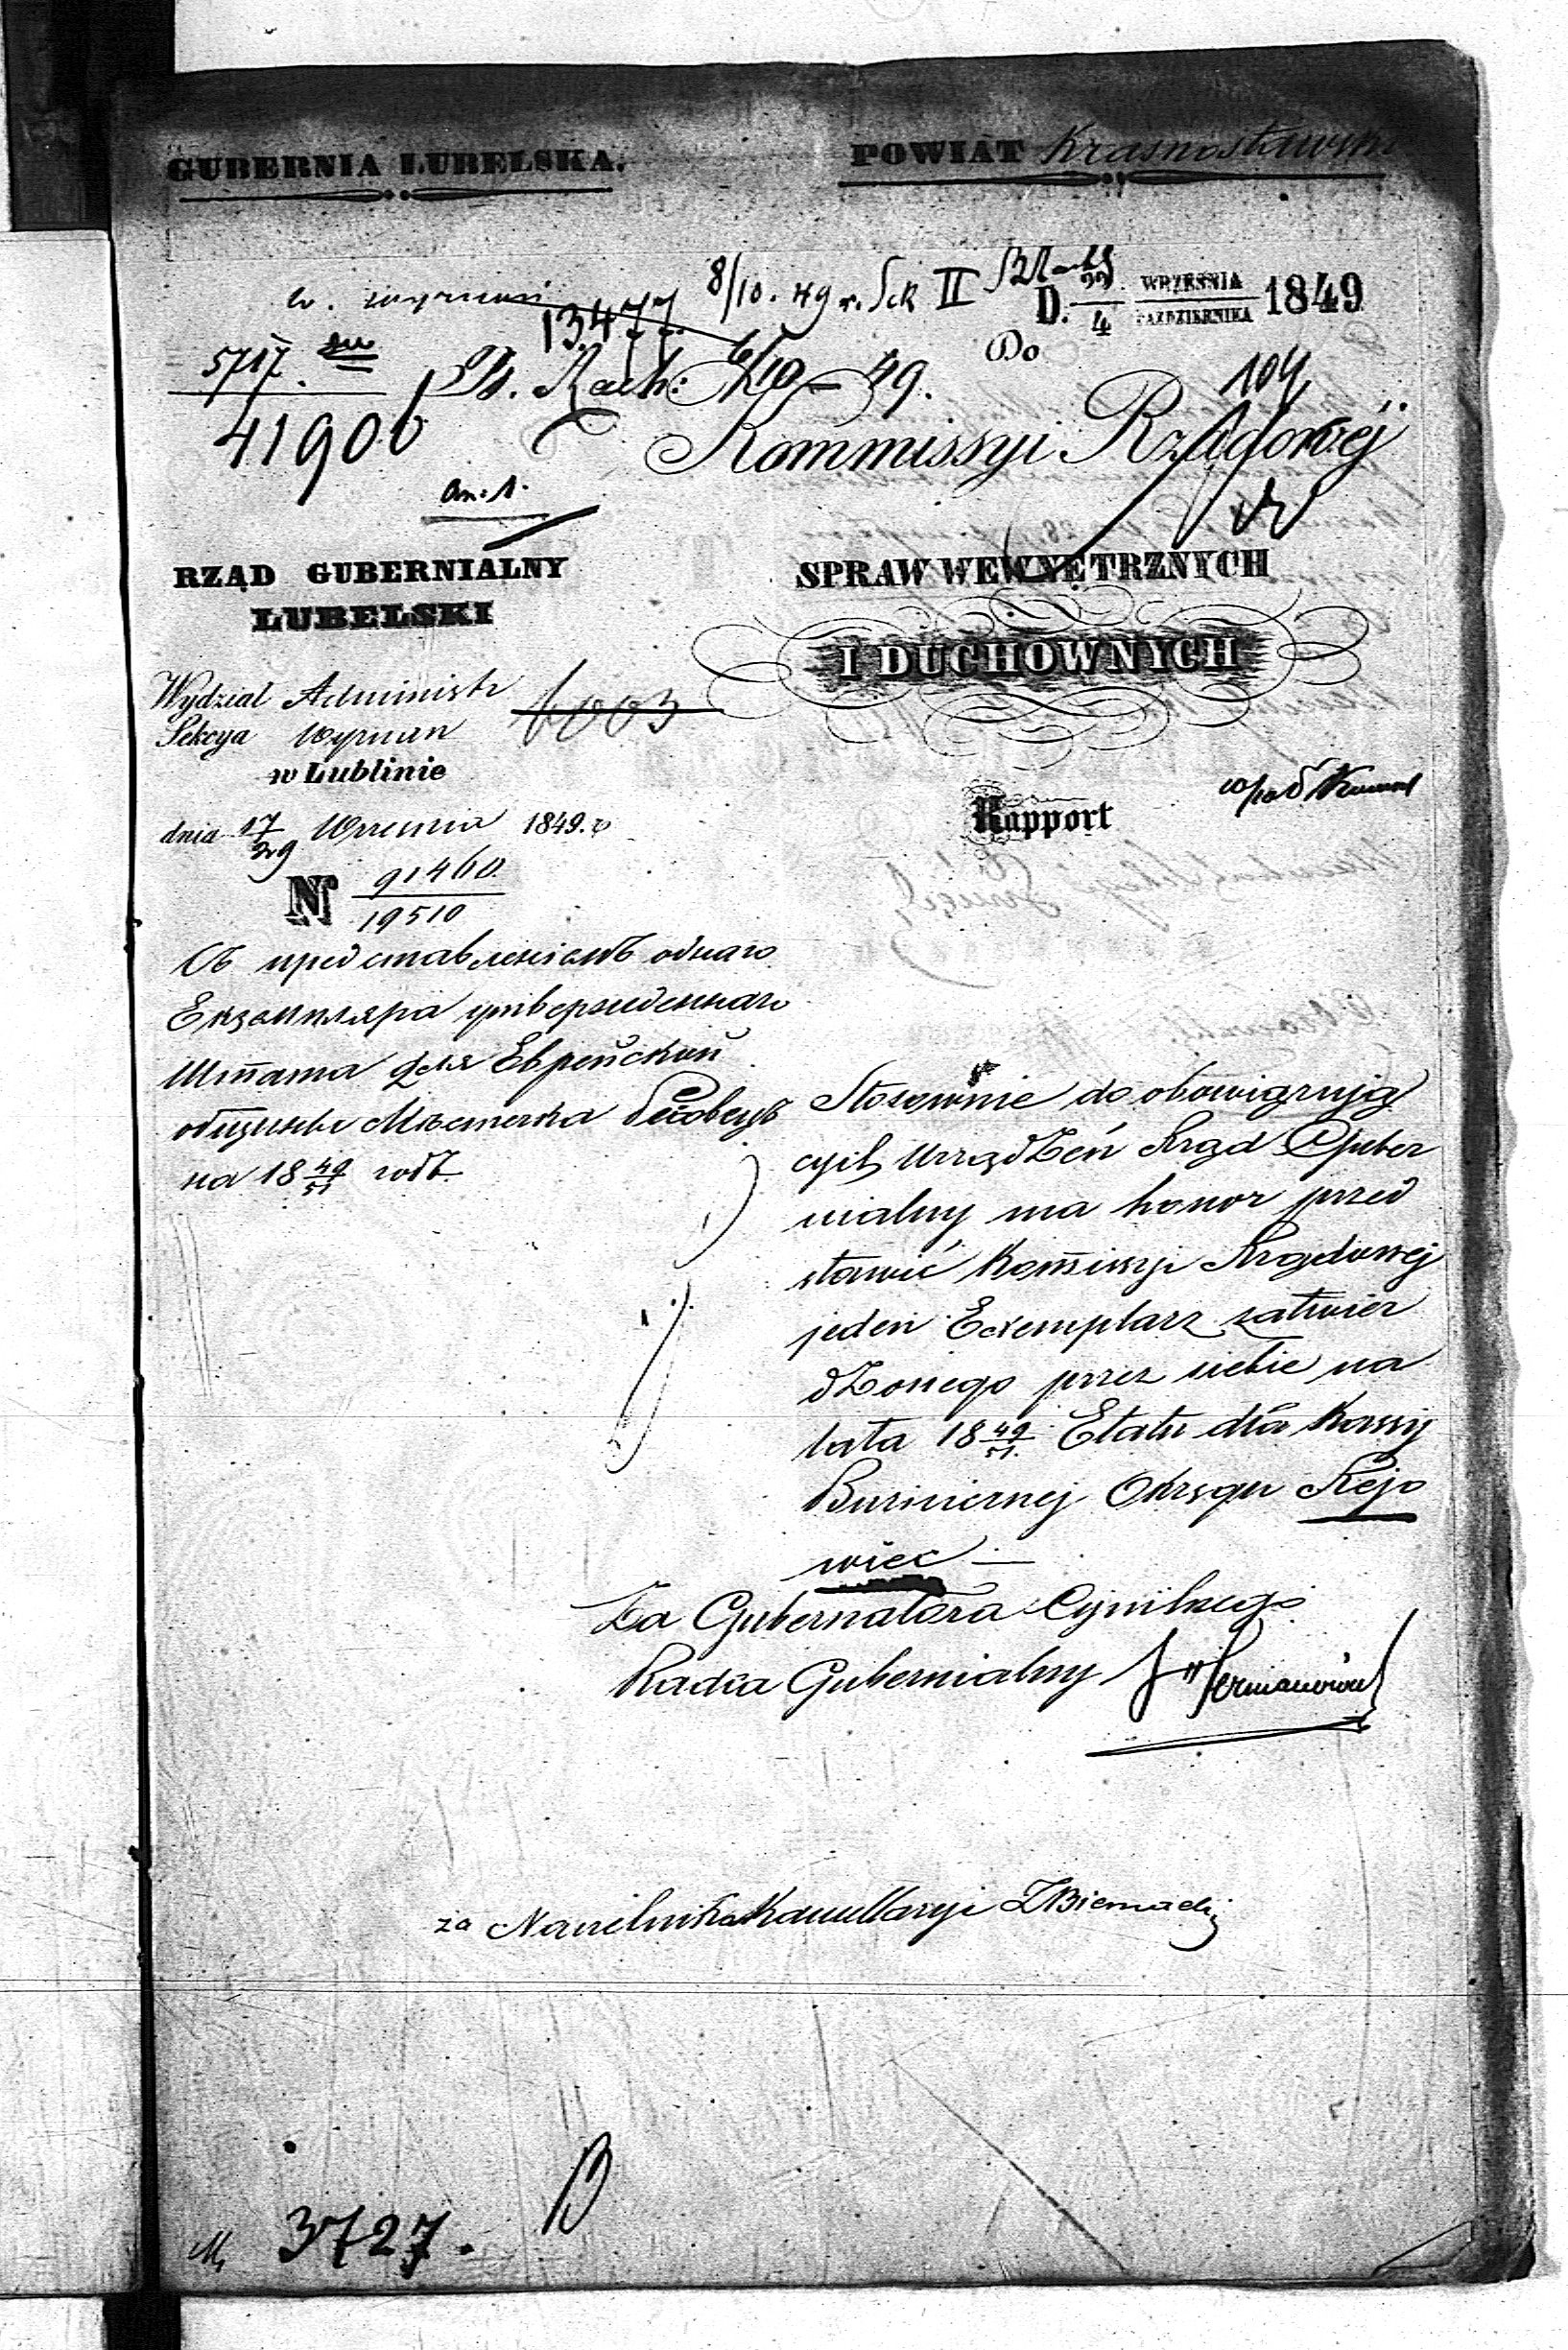 GUBERNIA LUBELSKA.
POWIAT Krasnostawski
8/10. 49 r. Sek II
D. 22/4 WRZEŚNIA/PAŹDZIERNIKA 1849
13477.
5717.
41906
Rach: 6/10 – 49.
Do
104
Kommissyi Rządowéj
an: 1.
RZĄD GUBERNIALNY
LUBELSKI
SPRAW WEWNĘTRZNYCH
I DUCHOWNYCH
Wydział Administr
Sekcya Wyznan
6003
w Lublinie
dnia 17/29 Wrzesnia 1849. r
Rapport
N 91460./19510
Съ представленіемъ однаго
Екземпляра утвержденнаго
Штата для Еврейской
общины Мѣстечка
на 18 49/51 годъ
Stosownie do obowiązują
cych Urządzeń Rząd Guber
nialny ma honor przed
stawić Kommissyi Rządowej
jeden Exemplarz zatwier
dzonego przez siebie na
lata 18 49/51. Etatu dla Kassy
Bużniczej Okręgu Rejo
wiec —
Za Gubernatora Cywilnego
Radca Gubernialny
za Naczelnika Kancellaryi
3727.